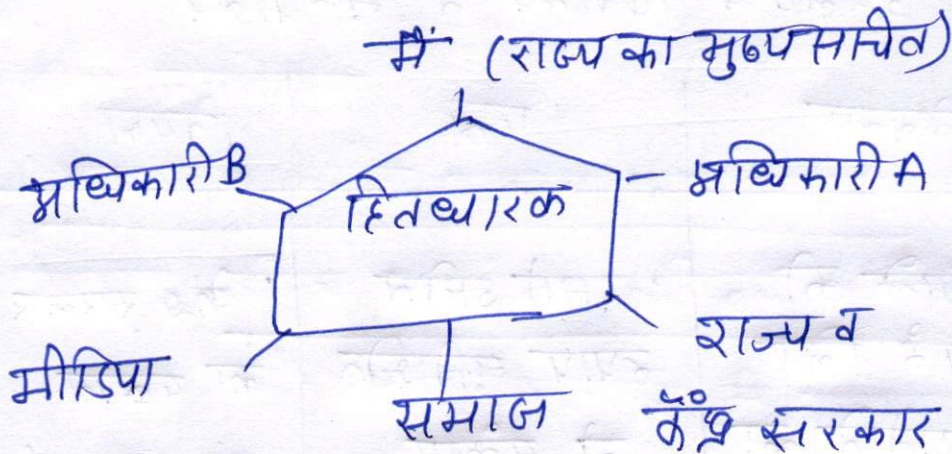 मैं (राज्य का मुख्य सचिव)
अधिकारी B
हितधारक
अधिकारी A
मीडिया
समाज
राज्य व
केंद्र सरकार